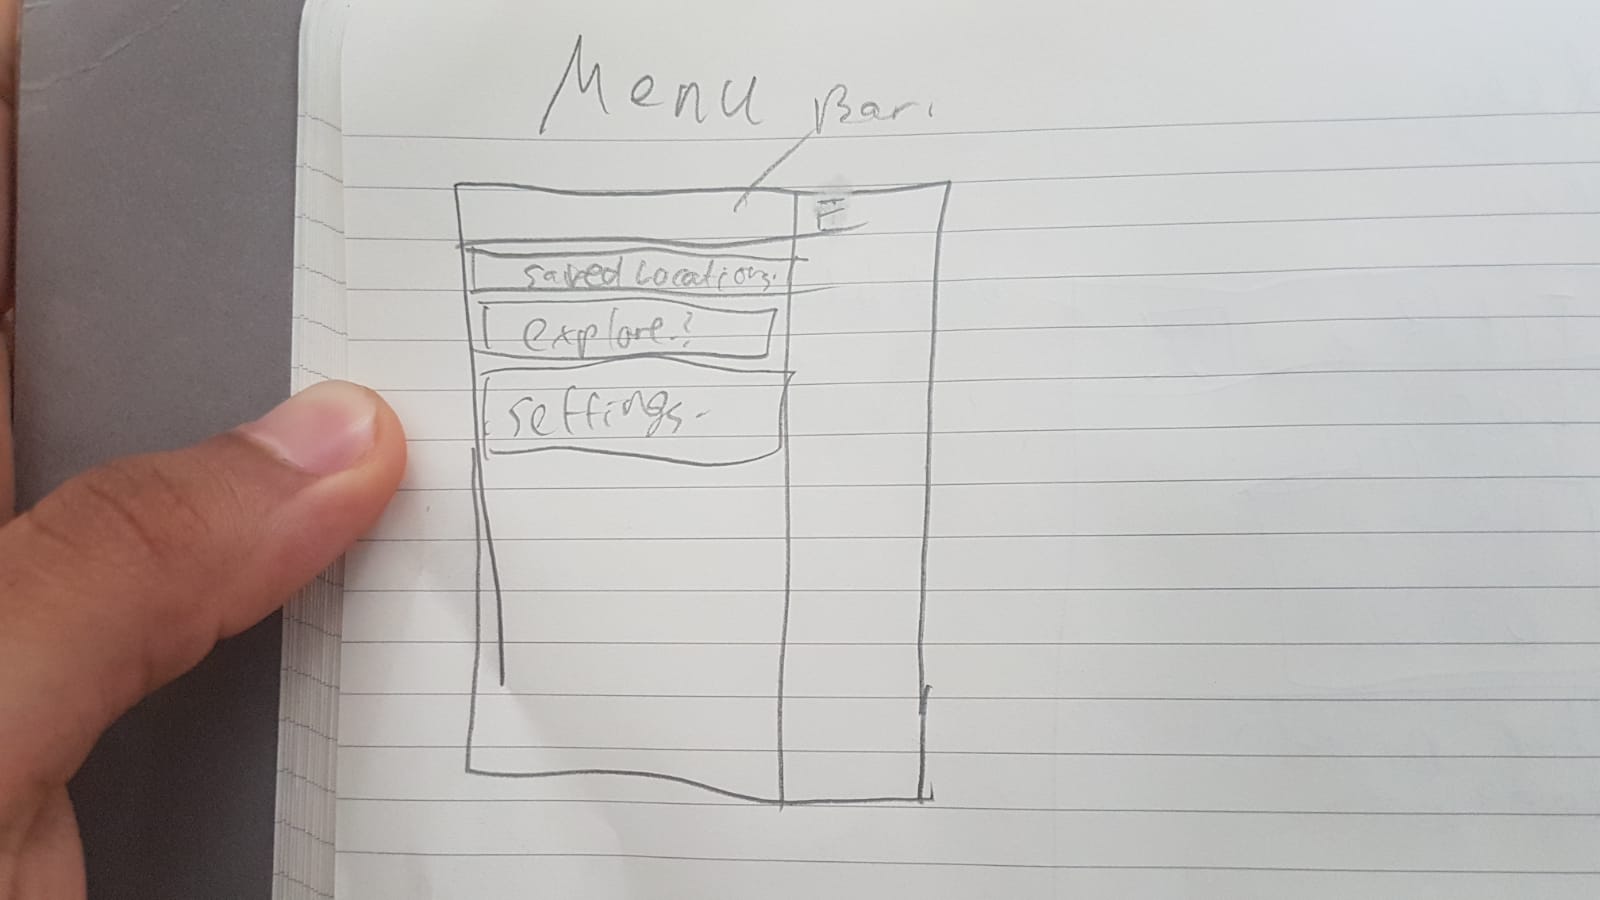 Menu
Bar.
E
saved locations.
explore.?
settings.